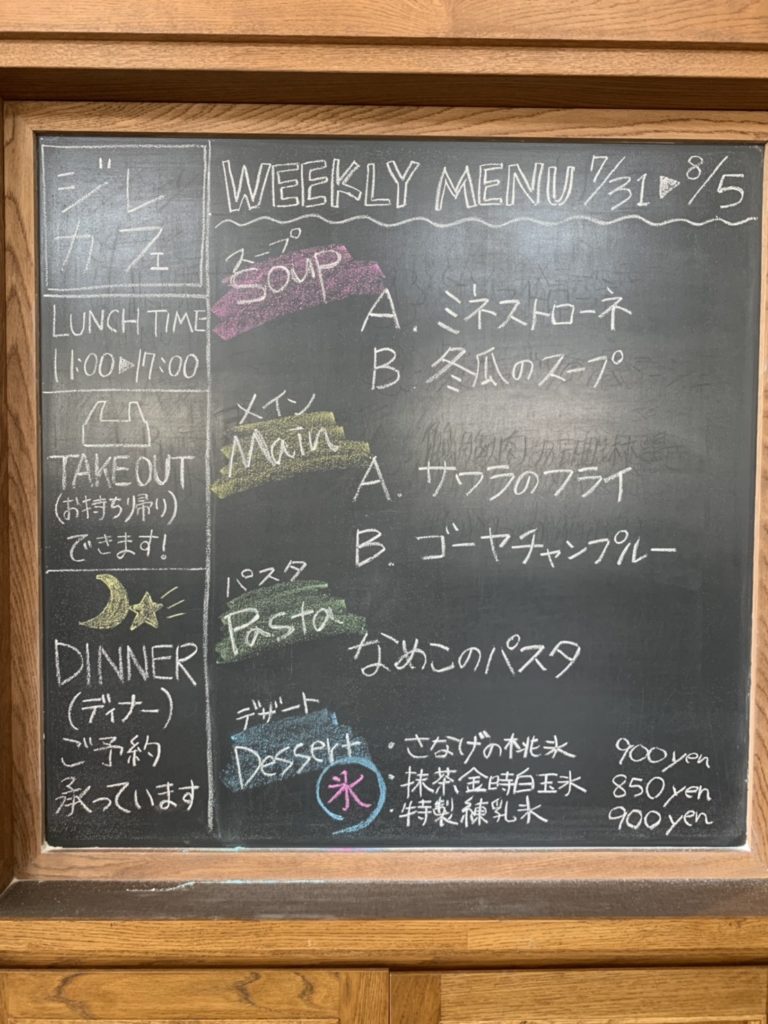 ジレ
カフェ
LUNCH TIME
11:00▶17:00
TAKE OUT
(お持ち帰り)
できます!
DINNER
(ディナー)
ご予約
承っています
WEEKLY MENU 7/31▶8/5
スープ
Soup
A. ミネストローネ
B. 冬瓜のスープ
メイン
Main
A. サワラのフライ
B. ゴーヤチャンプルー
パスタ
Pasta
なめこのパスタ
デザート
Dessert
氷
・さなげの桃氷 900yen
・抹茶金時白玉氷 850yen
・特製練乳氷 900yen